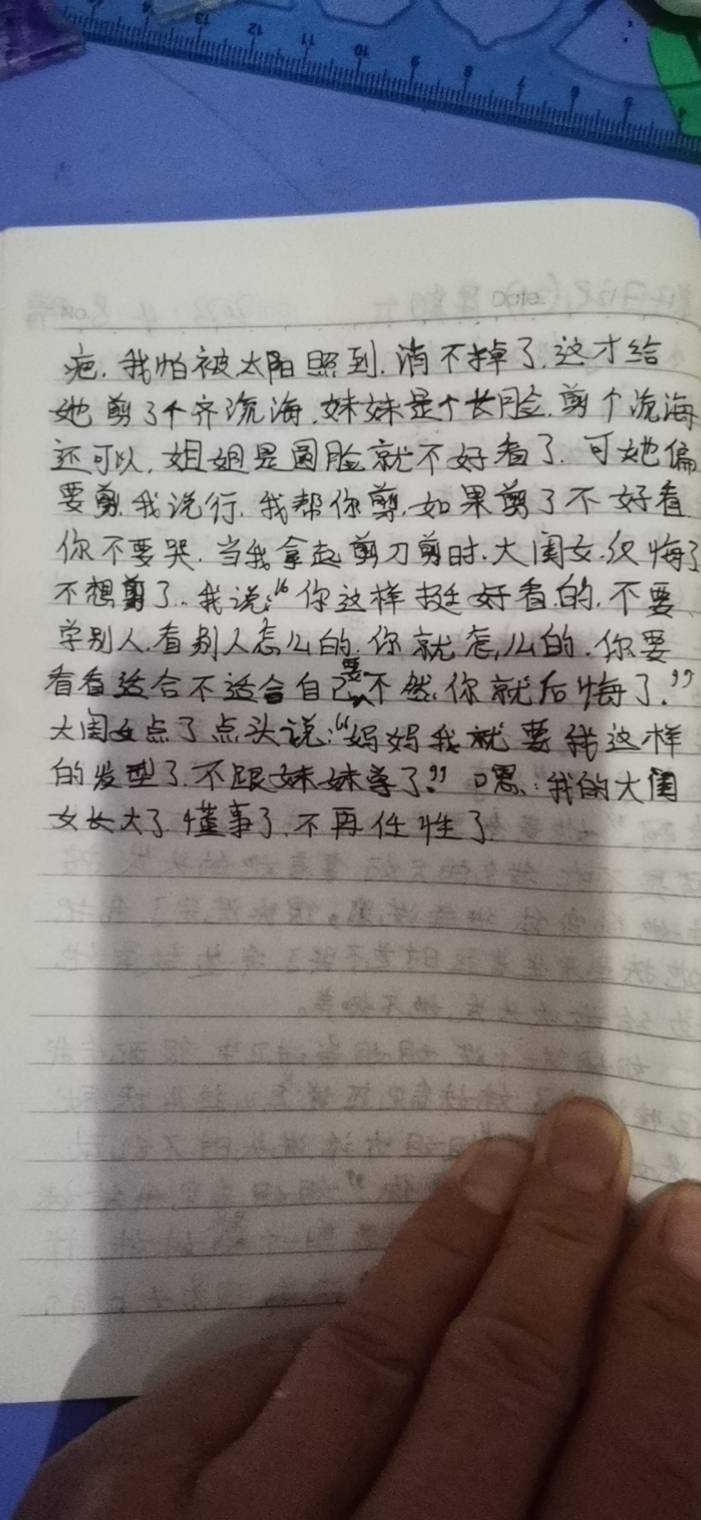 13 12 11 10 9 8 7 6 5
疤.我怕被太阳照到.消不掉了.这才给
她剪了个齐流海.妹妹是个长脸.剪个流海
还可以.姐姐是圆脸就不好看了.可她偏
要剪.我说行.我帮你剪.如果剪了不好看
你不要哭.当我拿起剪刀剪时.大闺女.反悔了
不想剪了..我说:“你这样挺好看.的.不要
学别人.看别人怎么的.你就怎么的.你要
看看适合不适合自己要不然你就后悔了.”
大闺女点了点头说:“妈妈我就要我这样
的发型了.不跟妹妹学了.”嘿.:我的大闺
女长大了.懂事了.不再任性了